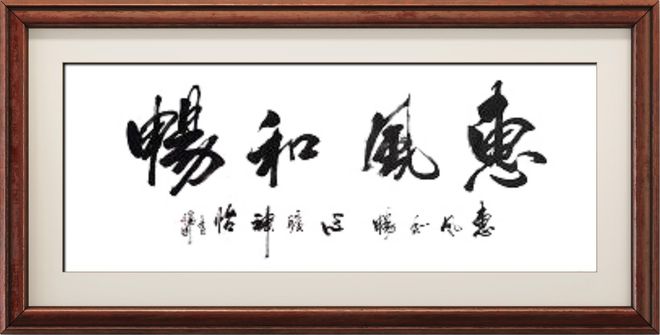 惠風和暢
惠风和暢 心曠神怡